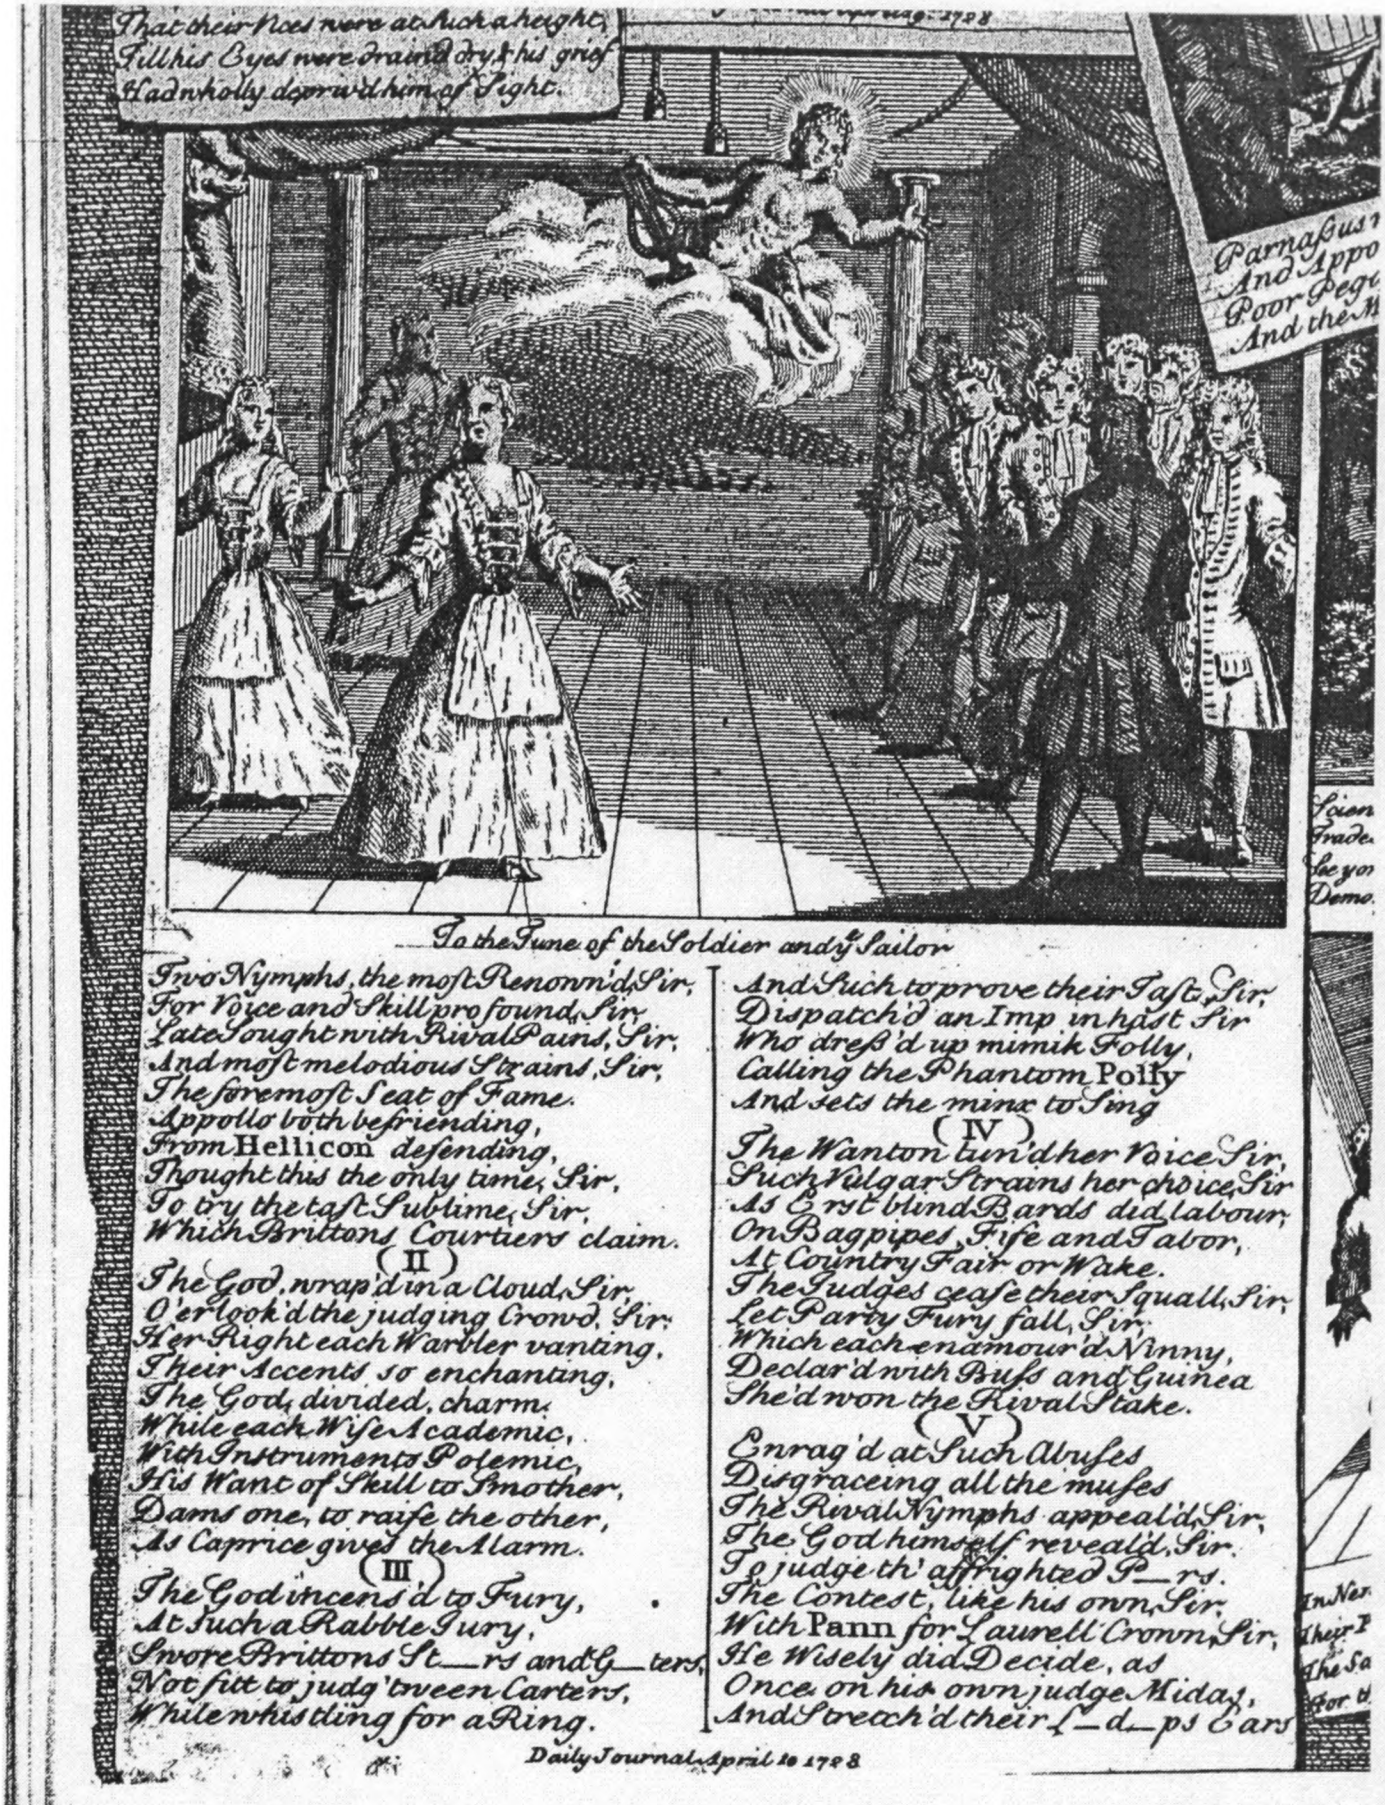 That their Vices were at Such a height,
Till his Eyes were drain'd dry, & his grief
Had wholly depriv'd him of Sight.
1728
Parnaßus
And Appo
Poor Peg
And the M
To the Tune of the Soldier and yᵉ Sailor
Two Nymphs, the most Renown'd, Sir,
For Voice and Skill profound, Sir,
Late Sought with Rival Pains, Sir,
And most melodious Strains, Sir,
The foremost Seat of Fame.
Appollo both befriending,
From Hellicon desending,
Thought this the only time, Sir,
To try the tast Sublime, Sir,
Which Brittons Courtiers claim.
(II)
The God, wrap'd in a Cloud, Sir,
O'erlook'd the judging Crowd, Sir,
Her Right each Warbler vanting,
Their Accents so enchanting,
The God, divided, charm.
While each Wise Academic,
With Instruments Polemic,
His Want of Skill to Smother,
Dams one, to raise the other,
As Caprice gives the Alarm.
(III)
The God incens'd to Fury,
At Such a Rabble Jury,
Swore Brittons St—rs and G—ters,
Not fitt to judg 'tween Carters,
While whistling for a Ring.
And Such to prove their Tast, Sir,
Dispatch'd an Imp in hast Sir
Who dreß'd up mimik Folly,
Calling the Phantom Polly
And sets the minx to Sing
(IV)
The Wanton tun'd her Voice Sir,
Such Vulgar Strains her choice, Sir
As Erst blind Bards did labour,
On Bagpipes, Fife and Tabor,
At Country Fair or Wake.
The Judges cease their Squall, Sir,
Let Party Fury fall, Sir,
Which each enamour'd Ninny,
Declar'd with Buss and Guinea
She'd won the Rival Stake.
(V)
Enrag'd at Such Abuses
Disgraceing all the muses
The Rival Nymphs appeal'd, Sir,
The God himself reveal'd, Sir.
To judge th' affrighted P—rs.
The Contest, like his own, Sir,
With Pann for Laurell Crown, Sir,
He Wisely did Decide, as
Once on his own judge Midas,
And Stretch'd their L—d—ps Ears
Daily Journal April 10 1728
Scien
Trade
See you
Demo
In Ner
Their P
The Sa
For th